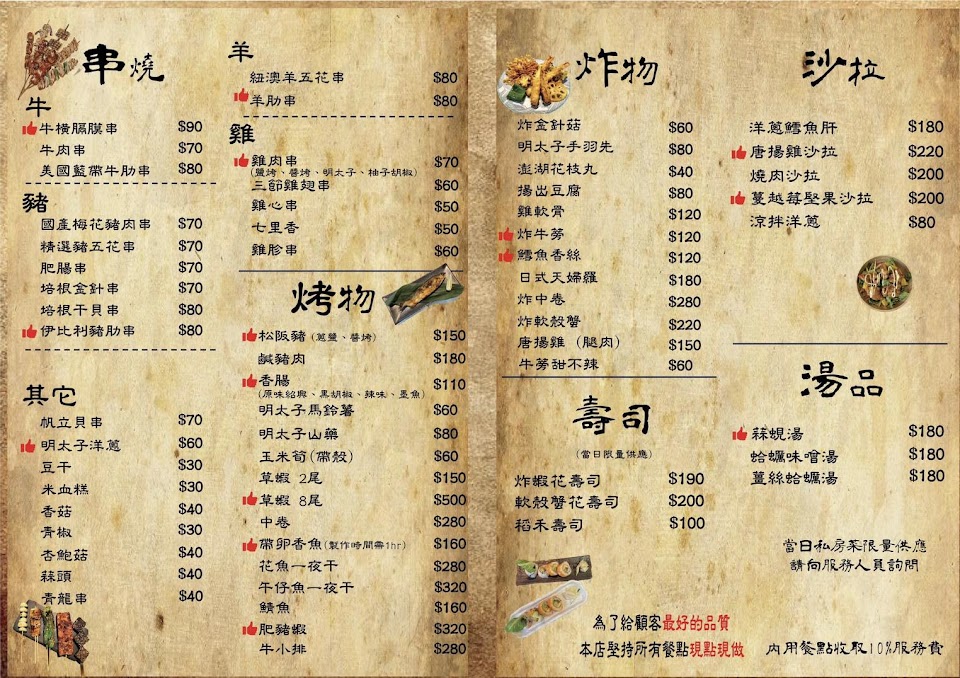 串燒
牛
牛橫膈膜串 $90
牛肉串 $70
美國藍帶牛肋串 $80
豬
國產梅花豬肉串 $70
精選豬五花串 $70
肥腸串 $70
培根金針串 $70
培根干貝串 $80
伊比利豬肋串 $80
其它
帆立貝串 $70
明太子洋蔥 $60
豆干 $30
米血糕 $30
香菇 $40
青椒 $30
杏鮑菇 $40
蒜頭 $40
青龍串 $40
羊
紐澳羊五花串 $80
羊肋串 $80
雞
雞肉串 $70
(鹽烤、醬烤、明太子、柚子胡椒)
三節雞翅串 $60
雞心串 $50
七里香 $50
雞胗串 $60
烤物
松阪豬(蔥鹽、醬烤) $150
鹹豬肉 $180
香腸 $110
(原味紹興、黑胡椒、辣味、墨魚)
明太子馬鈴薯 $60
明太子山藥 $80
玉米筍(帶殼) $60
草蝦 2尾 $150
草蝦 8尾 $500
中卷 $280
帶卵香魚(製作時間需1hr) $160
花魚一夜干 $280
午仔魚一夜干 $320
鯖魚 $160
肥豬蝦 $320
牛小排 $280
炸物
炸金針菇 $60
明太子手羽先 $80
澎湖花枝丸 $40
揚出豆腐 $80
雞軟骨 $120
炸牛蒡 $120
鱈魚香絲 $120
日式天婦羅 $180
炸中卷 $280
炸軟殼蟹 $220
唐揚雞(腿肉) $150
牛蒡甜不辣 $60
壽司
(當日限量供應)
炸蝦花壽司 $190
軟殼蟹花壽司 $200
稻禾壽司 $100
為了給顧客最好的品質
本店堅持所有餐點現點現做
沙拉
洋蔥鱈魚肝 $180
唐揚雞沙拉 $220
燒肉沙拉 $200
蔓越莓堅果沙拉 $200
涼拌洋蔥 $80
湯品
蒜蜆湯 $180
蛤蠣味噌湯 $180
薑絲蛤蠣湯 $180
當日私房菜限量供應
請向服務人員詢問
內用餐點收取10%服務費